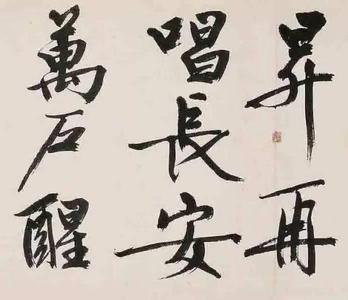 昇再
唱長安
萬户醒